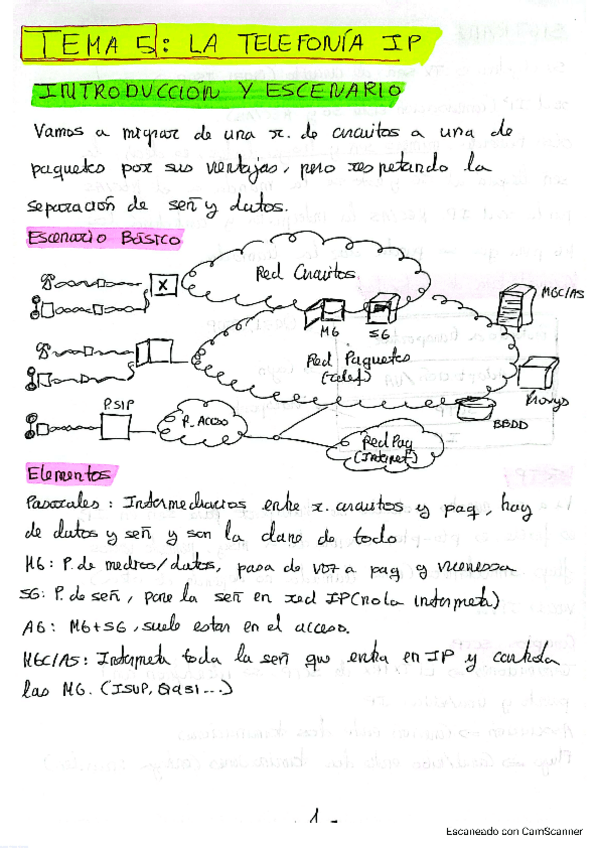 TEMA 5: LA TELEFONÍA IP
INTRODUCCION Y ESCENARIO
Vamos a migrar de una r. de circuitos a una de
paquetes por sus ventajas, pero respetando la
separación de señ y datos.
Escenario Básico
Red Circuitos
X
MGC/AS
MG
SG
Red Paquetes
(telef)
Proxys
P.SIP
R_Acceso
BBDD
Red Paq
(Internet)
Elementos
Pasarelas: Intermediarios entre r. circuitos y paq, hay
de datos y señ y son la clave de todo
MG: P. de medios/datos, pasa de voz a paq y viceversa
SG: P. de señ, pone la señ en red IP (no la interpreta)
AG: MG+SG, suele estar en el acceso.
MGC/AS: Interpreta toda la señ que entra en IP y controla
las MG. (ISUP, Qasi...)
1 -
Escaneado con CamScanner